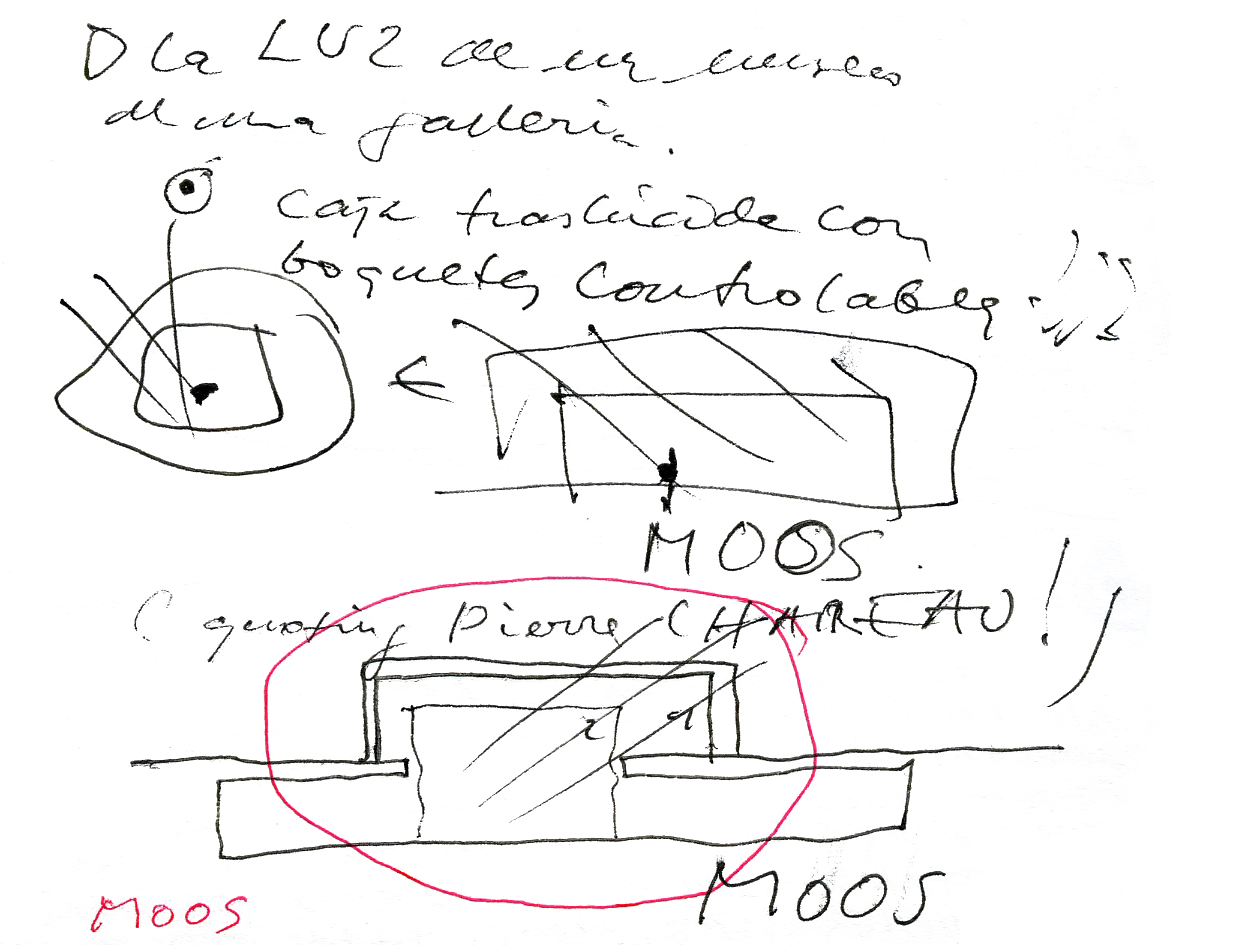 D la LUZ de un museo
de una galleria.
Caja traslucida con
boquetes controlables
MOOS
Pierre CHAREAU!
r a
MOOS
MOOS